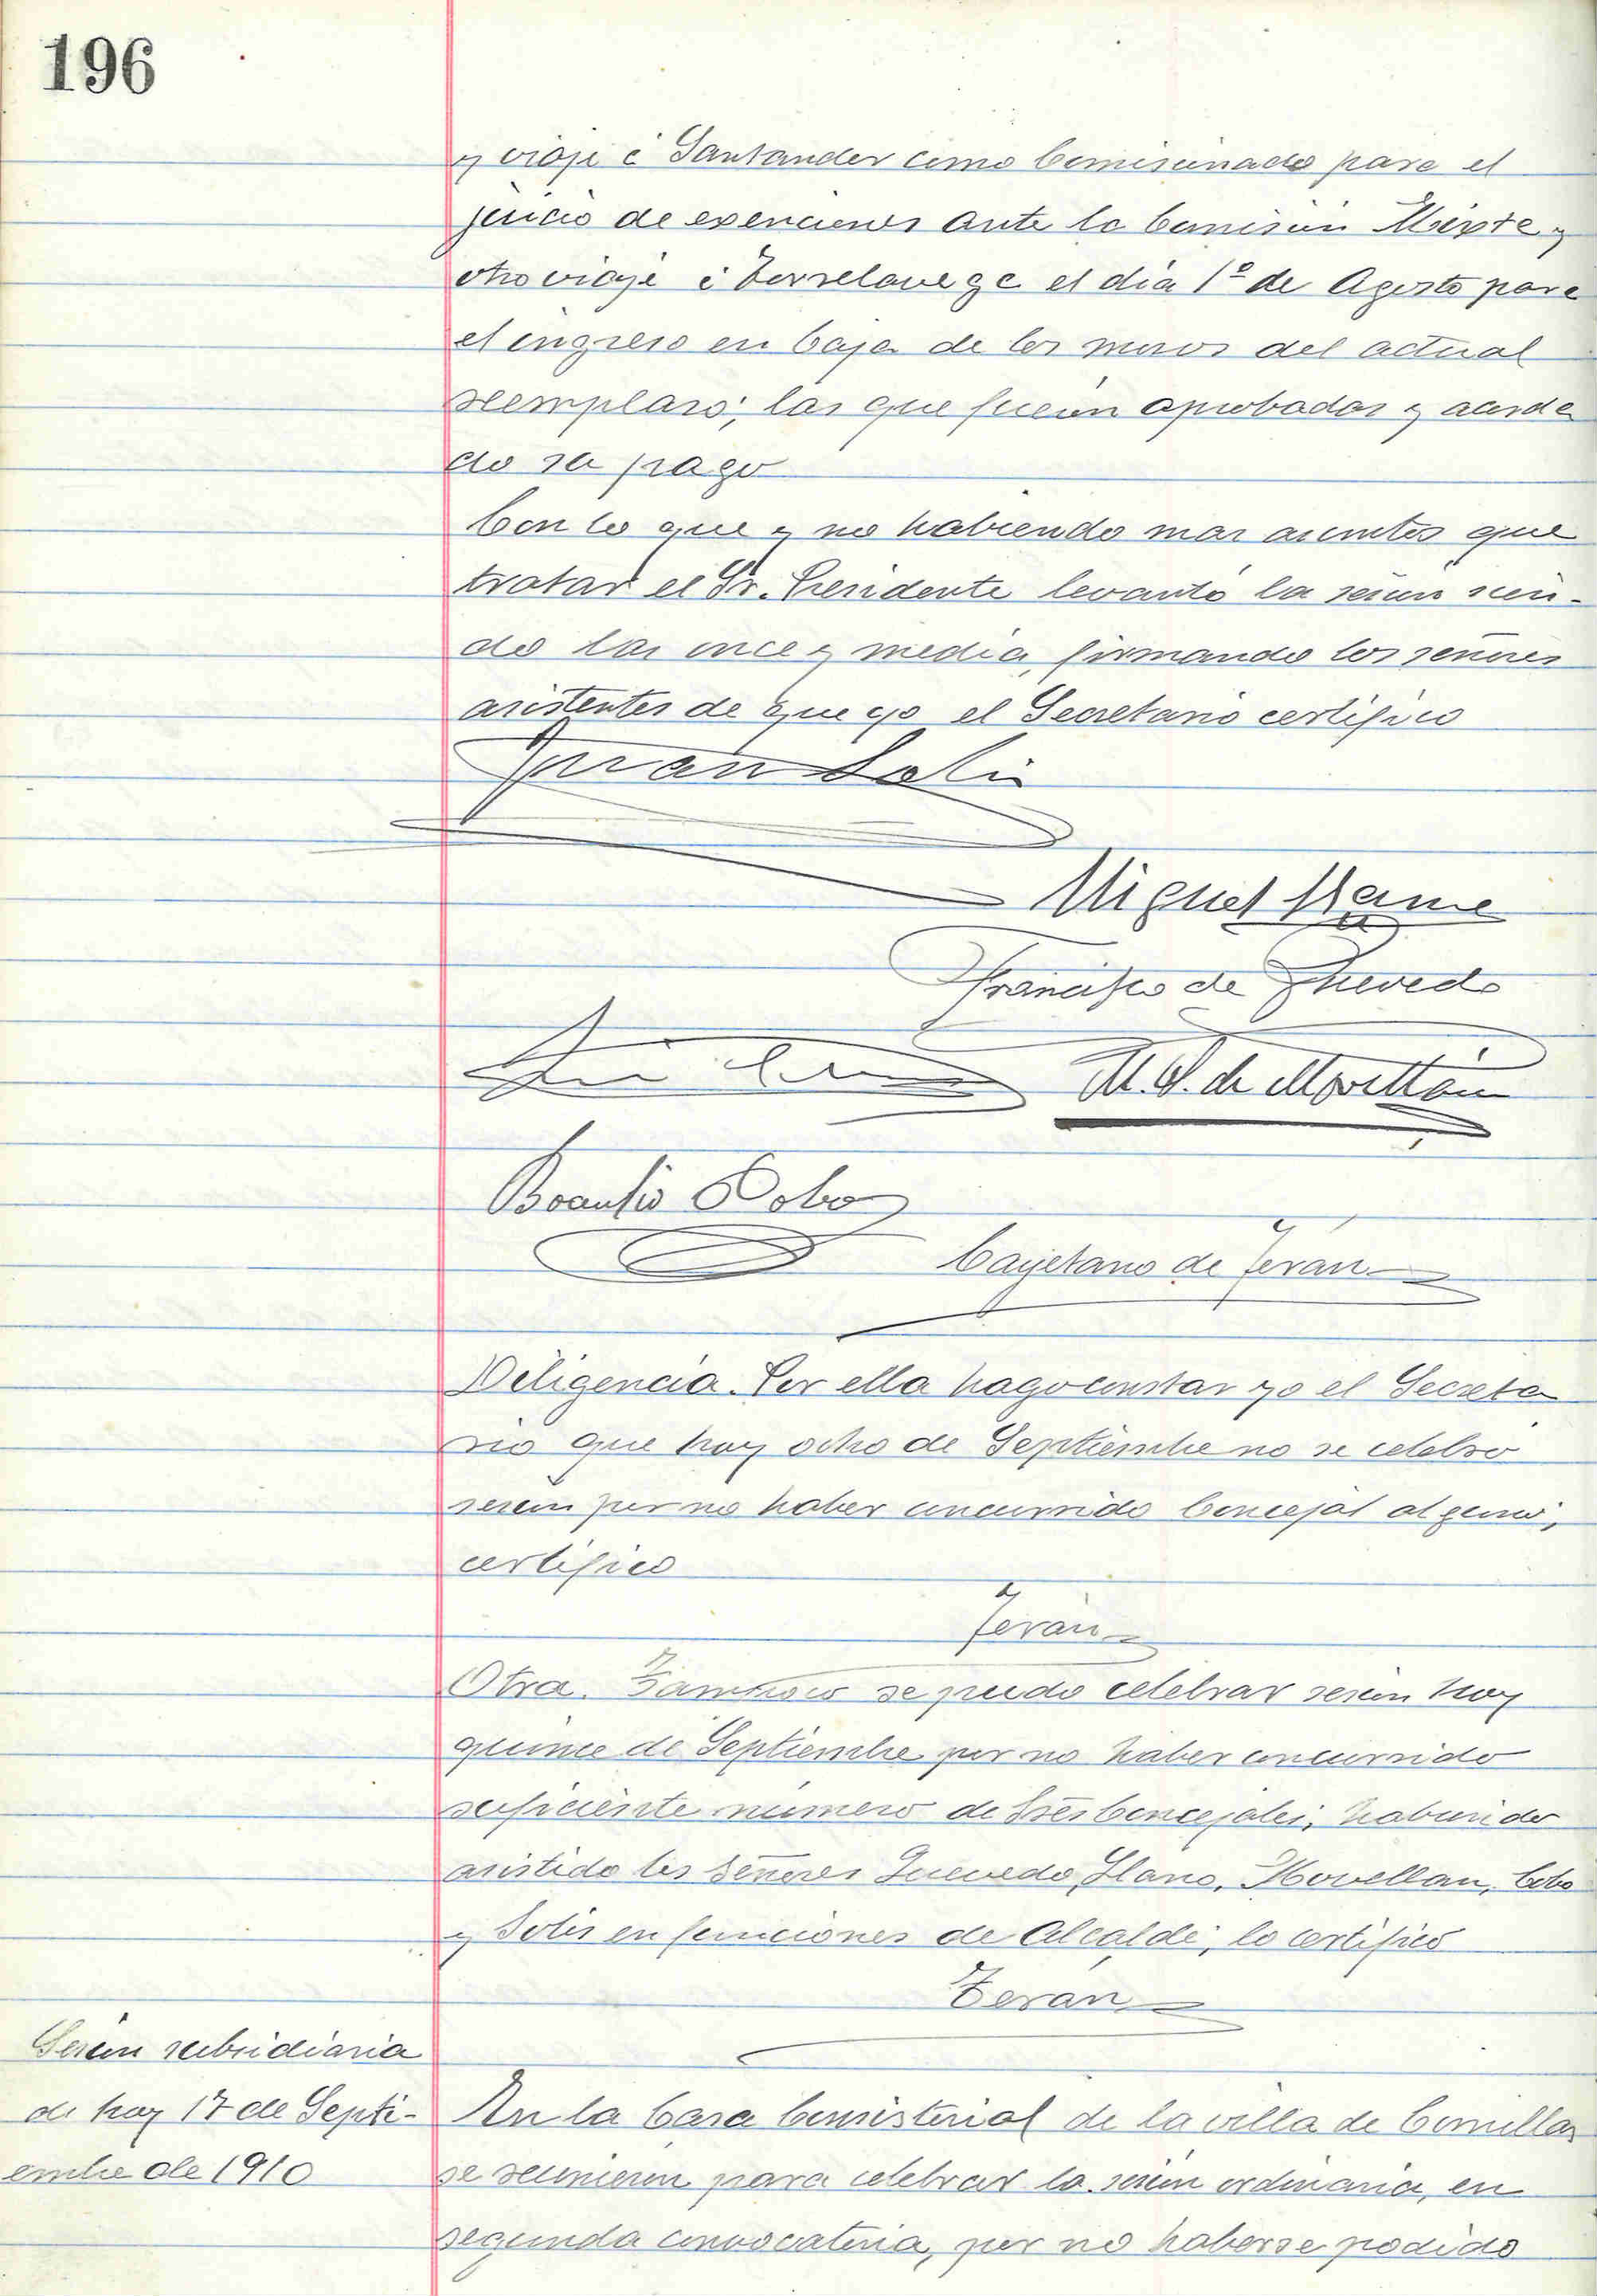 196
y viaje á Santander como Comisionado para el
juicio de exenciones ante la Comisión Mixta y
otro viaje á Torrelavega el día 1º de Agosto para
el ingreso en Caja de los mozos del actual
reemplazo; las que fueron aprobadas y acorda
do su pago
Con lo que y no habiendo mas asuntos que
tratar el Sr. Presidente levantó la sesión sien-
do las once y media, firmando los señores
asistentes de que yo el Secretario certifico
Juan Solis
Miguel
Francisco de Quevedo
M. S. de Movellán
Braulio Cobo
Cayetano de Terán
Diligencia. Por ella hago constar yo el Secreta
rio que hoy ocho de Septiembre no se celebró
sesión por no haber concurrido Concejal alguno;
certifico
Terán
Otra. Tampoco se pudo celebrar sesión hoy
quince de Septiembre por no haber concurrido
suficiente número de Sres Concejales; habiendo
asistido los señores Quevedo, Llano, Movellan, Cobo
y Solis en funciones de Alcalde; lo certifico
Terán
Sesión subsidiaria
de hoy 17 de Septi-
embre de 1910
En la Casa Consistorial de la villa de Comillas
se reunieron para celebrar la sesión ordinaria, en
segunda convocatoria, por no haberse podido